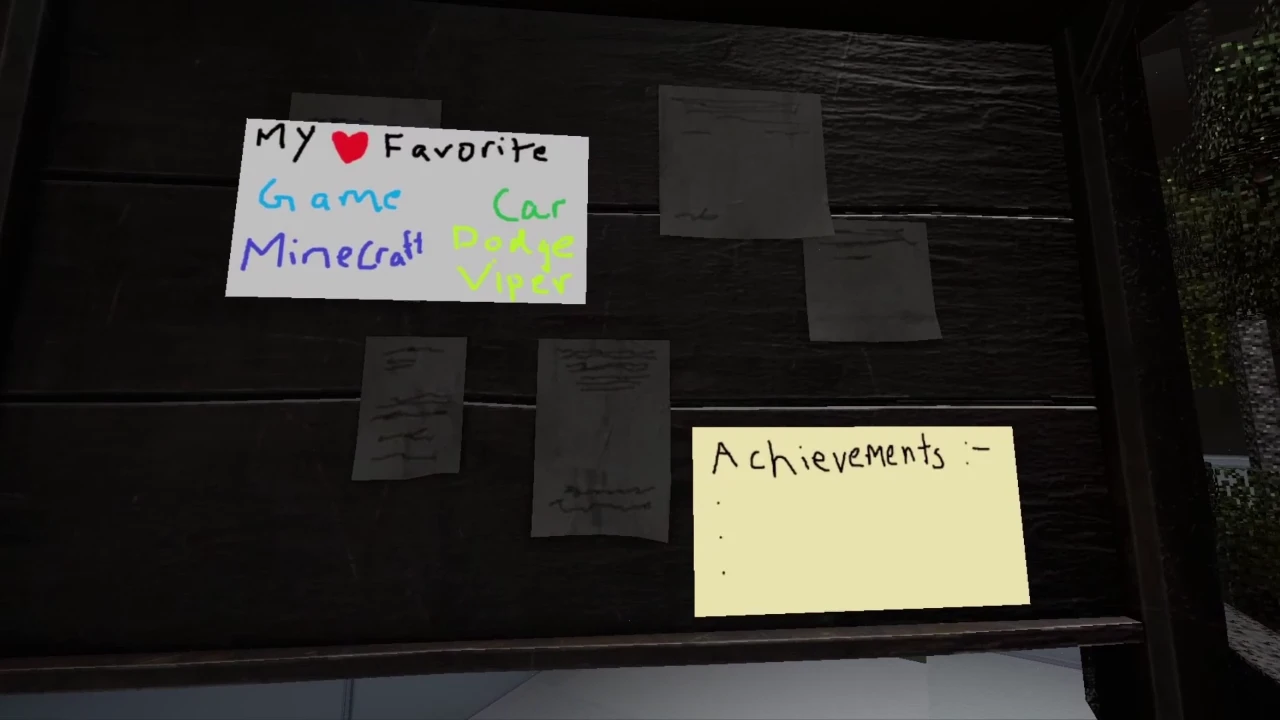 My ❤ Favorite
Game
Car
Minecraft
Dodge
Viper
Achievements :-
.
.
.